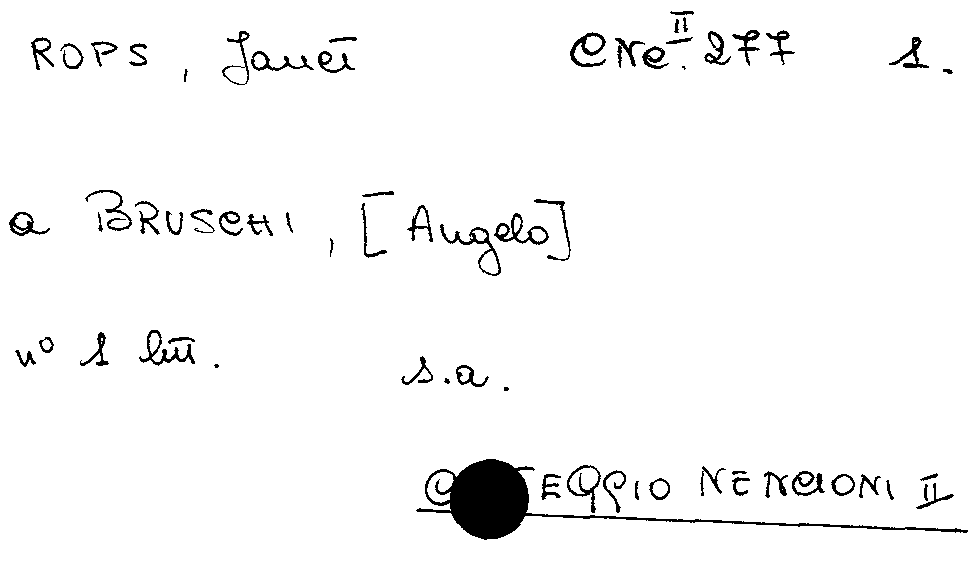 ROPS, Janet CNe.II 277 1.
a BRUSCHI, [Angelo]
n° 1 lett.
s.a.
C TEGGIO NENCIONI II